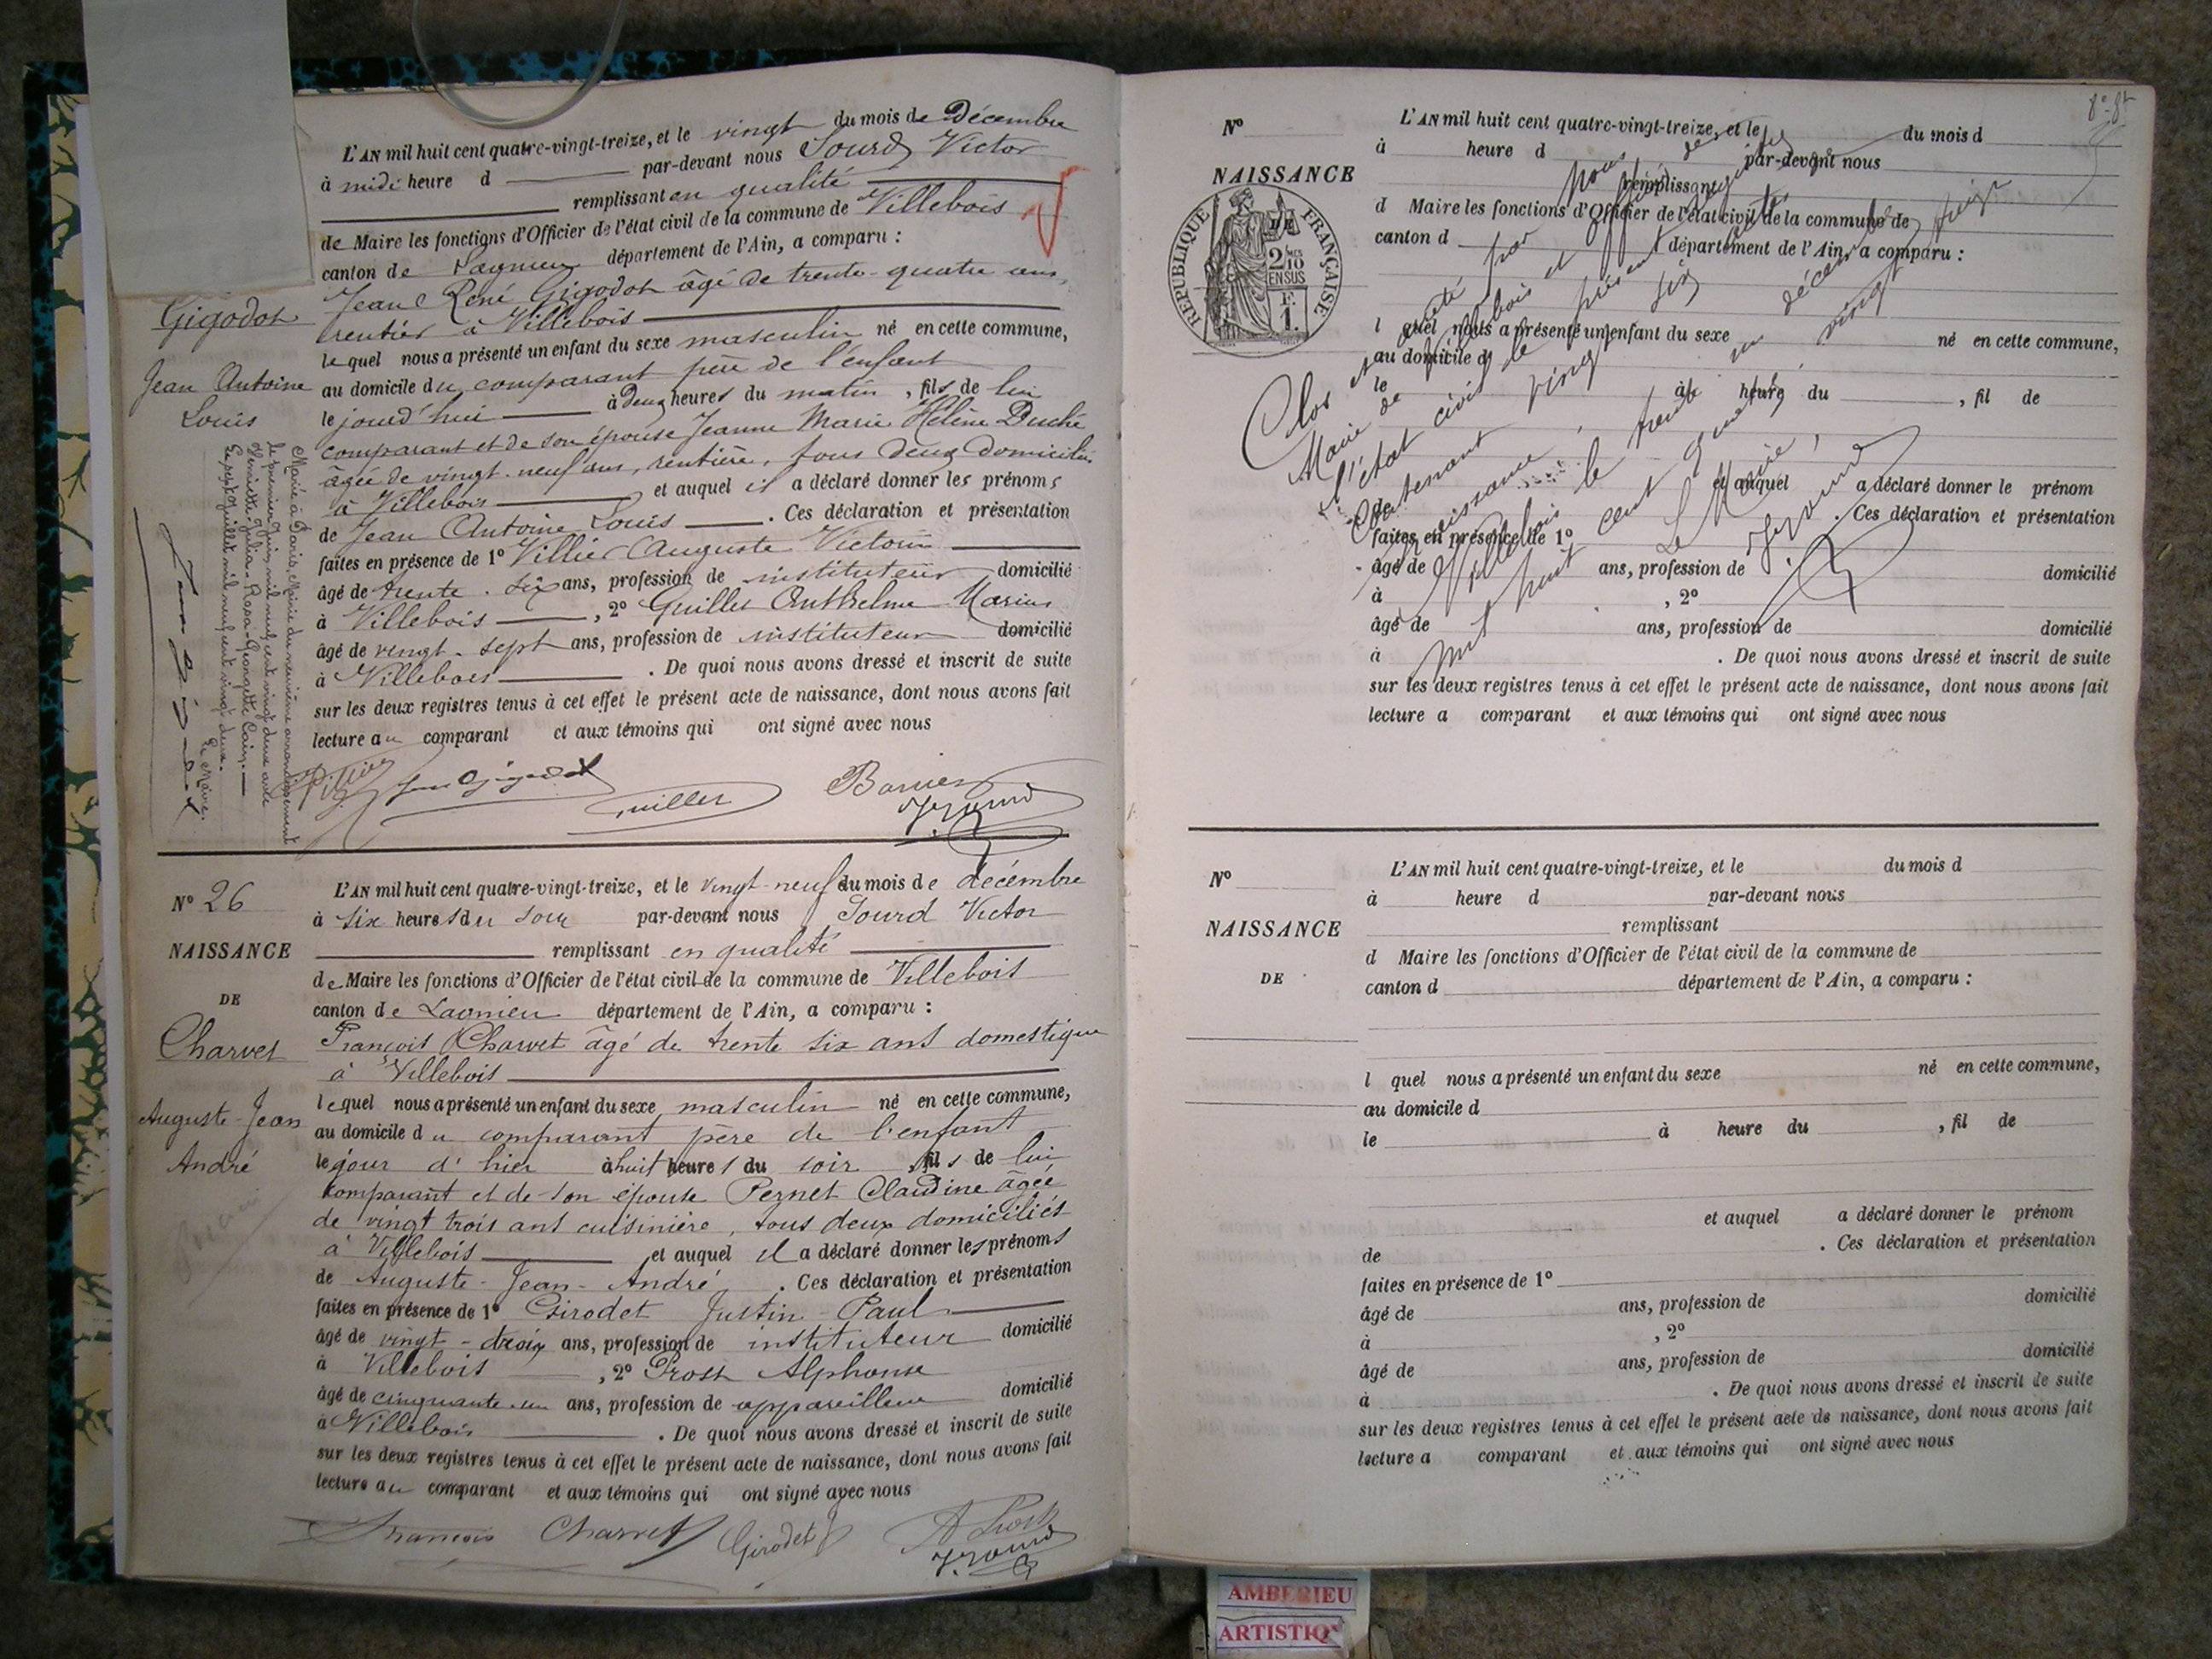 L'AN mil huit cent quatre-vingt-treize, et le vingt du mois de Décembre
à midi heure d par-devant nous Sourd Victor
remplissant en qualité
de Maire les fonctions d'Officier de l'état civil de la commune de Villebois
canton de Lagnieu département de l'Ain, a comparu :
Gigodot
Jean René Gigodot âgé de trente-quatre ans,
rentier à Villebois
lequel nous a présenté un enfant du sexe masculin né en cette commune,
Jean Antoine
Louis
au domicile du comparant père de l'enfant
le jourd'hui à deux heures du matin, fils de lui
comparant et de son épouse Jeanne Marie Hélène Duché
âgée de vingt-neuf ans, rentière, tous deux domiciliés
à Villebois et auquel il a déclaré donner les prénoms
de Jean Antoine Louis. Ces déclaration et présentation
faites en présence de 1º Villier Auguste Victorin
âgé de trente-six ans, profession de instituteur domicilié
à Villebois, 2º Guiller Anthelme Marius
âgé de vingt-sept ans, profession de instituteur domicilié
à Villebois. De quoi nous avons dressé et inscrit de suite
sur les deux registres tenus à cet effet le présent acte de naissance, dont nous avons fait
lecture au comparant et aux témoins qui ont signé avec nous
Marié à Paris, Mairie du neuvième arrondissement
le premier Juin mil neuf cent vingt deux avec
Henriette Julia-Rosa-Georgette
Le sept Juillet mil neuf cent vingt deux.
Le Maire,
Villier Jean Gigodot Guiller
Nº 26
NAISSANCE
DE
Charvet
Auguste-Jean
André
L'AN mil huit cent quatre-vingt-treize, et le vingt-neuf du mois de décembre
à six heures du soir par-devant nous Sourd Victor
remplissant en qualité
de Maire les fonctions d'Officier de l'état civil de la commune de Villebois
canton de Lagnieu département de l'Ain, a comparu :
François Charvet âgé de trente six ans domestique
à Villebois
lequel nous a présenté un enfant du sexe masculin né en cette commune,
au domicile du comparant père de l'enfant
le jour d'hier à huit heures du soir, fils de lui
comparant et de son épouse Pernet Claudine âgée
de vingt trois ans cuisinière, tous deux domiciliés
à Villebois et auquel il a déclaré donner les prénoms
de Auguste-Jean-André. Ces déclaration et présentation
faites en présence de 1º Girodet Justin Paul
âgé de vingt-trois ans, profession de instituteur domicilié
à Villebois, 2º Prost Alphonse
âgé de cinquante-un ans, profession de appareilleur domicilié
à Villebois. De quoi nous avons dressé et inscrit de suite
sur les deux registres tenus à cet effet le présent acte de naissance, dont nous avons fait
lecture au comparant et aux témoins qui ont signé avec nous
François Charvet Girodet A Prost
Nº
NAISSANCE
DE
REPUBLIQUE FRANÇAISE
2/10 EN SUS
F. 1.
L'AN mil huit cent quatre-vingt-treize, et le du mois d
à heure d par-devant nous
remplissant
d Maire les fonctions d'Officier de l'état civil de la commune de
canton d département de l'Ain, a comparu :
l quel nous a présenté un enfant du sexe né en cette commune,
au domicile d
le à heure du , fil de
et auquel a déclaré donner le prénom
de . Ces déclaration et présentation
faites en présence de 1º
âgé de ans, profession de domicilié
à , 2º
âgé de ans, profession de domicilié
à . De quoi nous avons dressé et inscrit de suite
sur les deux registres tenus à cet effet le présent acte de naissance, dont nous avons fait
lecture a comparant et aux témoins qui ont signé avec nous
Clos et arrêté par nous
Maire de Villebois et officier de
l'état civil le présent registre
Contenant vingt six actes
de naissance
Villebois le trente un décembre
mil huit cent quatre vingt treize
Le Maire,
Nº
NAISSANCE
DE
L'AN mil huit cent quatre-vingt-treize, et le du mois d
à heure d par-devant nous
remplissant
d Maire les fonctions d'Officier de l'état civil de la commune de
canton d département de l'Ain, a comparu :
l quel nous a présenté un enfant du sexe né en cette commune,
au domicile d
le à heure du , fil de
et auquel a déclaré donner le prénom
de . Ces déclaration et présentation
faites en présence de 1º
âgé de ans, profession de domicilié
à , 2º
âgé de ans, profession de domicilié
à . De quoi nous avons dressé et inscrit de suite
sur les deux registres tenus à cet effet le présent acte de naissance, dont nous avons fait
lecture a comparant et aux témoins qui ont signé avec nous
AMBERIEU
ARTISTIQ